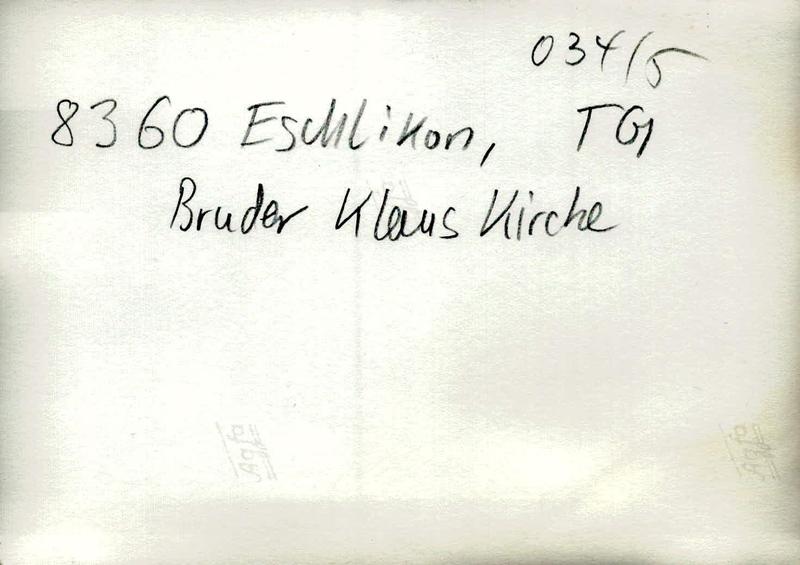 034/5
8360 Eschlikon, TG
Bruder Klaus Kirche
Agfa
Agfa